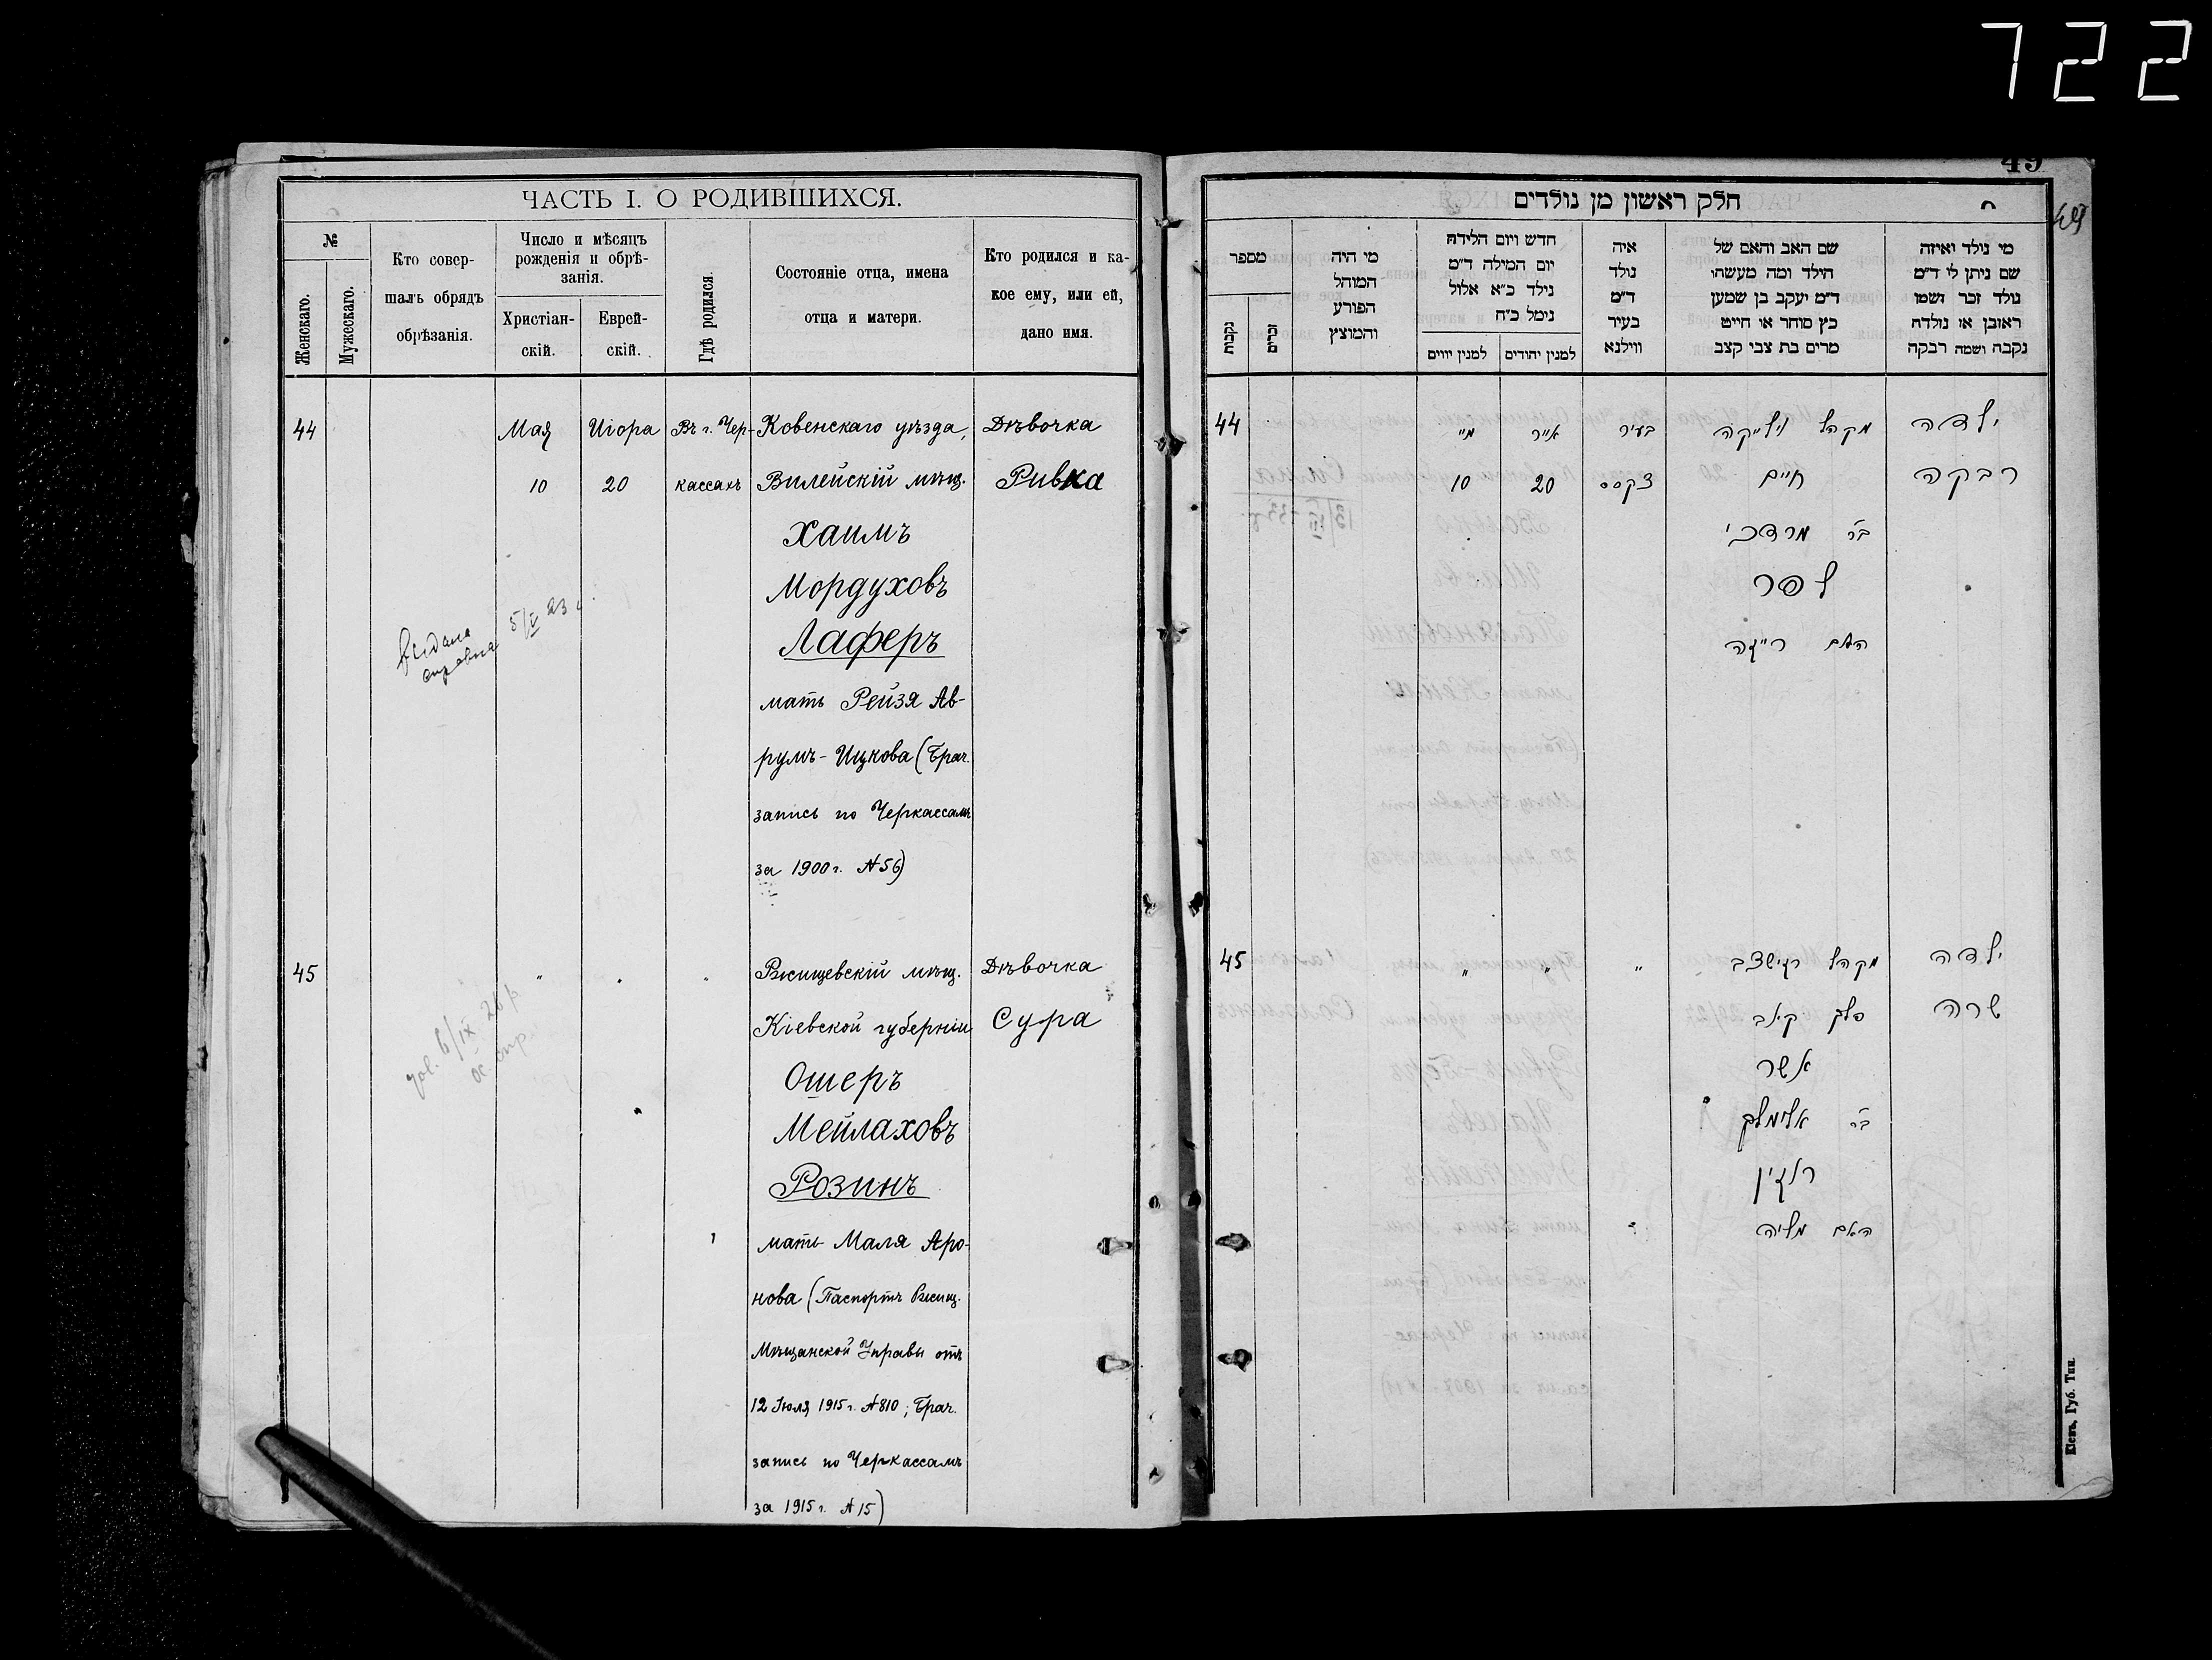 722
49
49
ЧАСТЬ I. О РОДИВШИХСЯ.
№
Женскаго.
Мужескаго.
Кто совер-
шалъ обрядъ
обрѣзанія.
Число и мѣсяцъ
рожденія и обрѣ-
занія.
Христіан-
скій.
Еврей-
скій.
Гдѣ родился.
Состояніе отца, имена
отца и матери.
Кто родился и ка-
кое ему, или ей,
дано имя.
44
Мая
10
Иіора
20
Въ г. Чер-
кассахъ
Ковенскаго уѣзда,
Вилейскій мѣщ.
Хаимъ
Мордуховъ
Лаферъ
мать Рейзя Ав-
румъ-Ицкова (Брач.
запись по Черкассамъ
за 1900 г. №56)
Дѣвочка
Ривка
видана
справка
5/V 23
45
"
"
"
Ржищевскій мѣщ.
Кіевской губерніи
Ошеръ
Мейлаховъ
Розинъ
мать Маля Аро-
нова (Паспортъ Ржищ.
Мѣщанской Управы отъ
12 Іюля 1915 г. №810; Брач.
запись по Черкассамъ
за 1915 г. №15)
Дѣвочка
Сура
6/IX 26 р.
חלק ראשון מן נולדים
מספר
נקבות
זכרים
מי היה
המוהל
הפורע
והמוצץ
חדש ויום הלידה
יום המילה ד"מ
נילד כ"א אלול
נימל כ"ח
למנין יווים
למנין יהודים
איה
נולד
ד"מ
בעיר
ווילנא
שם האב והאם של
הילד ומה מעשהו
ד"מ יעקב בן שמען
כץ סוחר או חייט
מרים בת צבי קצב
מי נולד ואיזה
שם ניתן לו ד"מ
נולד זכר ושמו
ראובן או נולדה
נקבה ושמה רבקה
44
מיי
10
אייר
20
בעיר
צקסס
מקהל ווילייקה
חיים
בר מרדכי
לפר
האם רייזה
ילדה
רבקה
45
"
"
"
מקהל רזישצב
פלך קאב
אשר
בר אלימלך
ראזין
האם מליה
ילדה
שרה
Кіевъ, Губ. Тип.